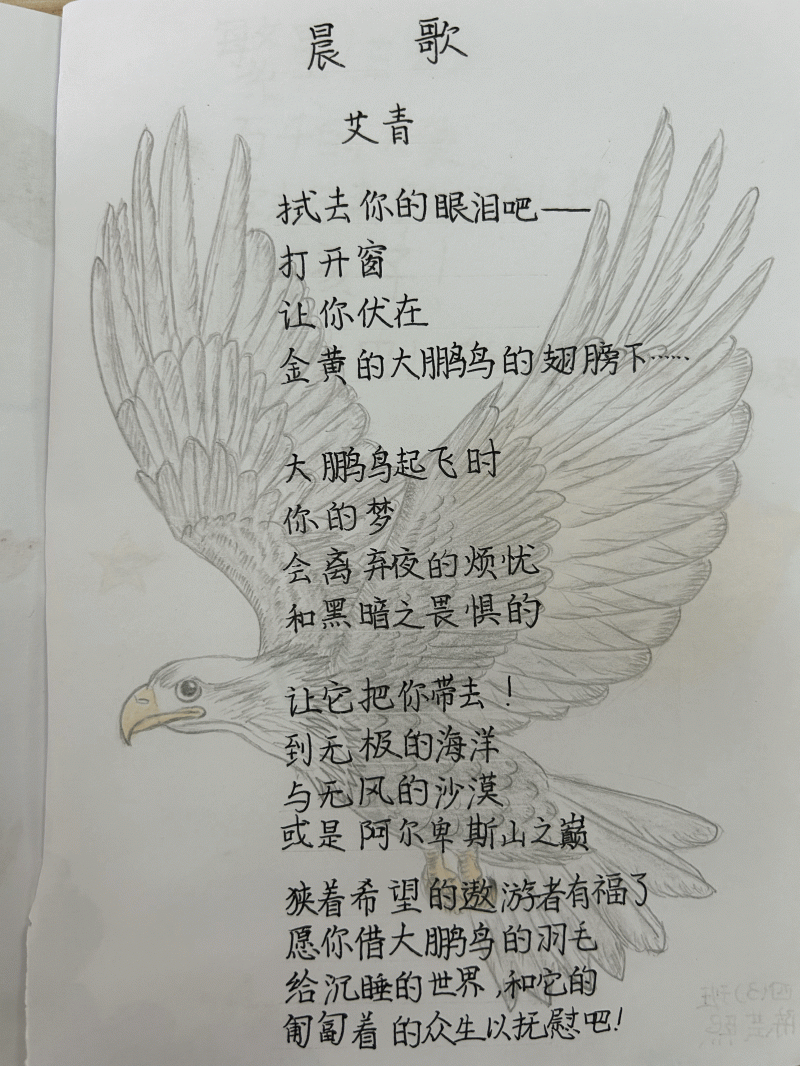 晨歌
艾青
拭去你的眼泪吧——
打开窗
让你伏在
金黄的大鹏鸟的翅膀下……
大鹏鸟起飞时
你的梦
会离弃夜的烦忧
和黑暗之畏惧的
让它把你带去！
到无极的海洋
与无风的沙漠
或是阿尔卑斯山之巅
狭着希望的遨游者有福了
愿你借大鹏鸟的羽毛
给沉睡的世界,和它的
匍匐着的众生以抚慰吧！